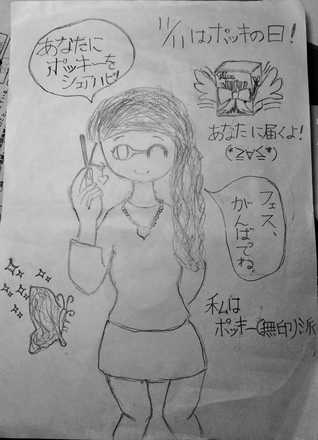 11/11はポッキの日!
あなたに
ポッキーを
シュウハピ!
あなたに届くよ!
(*≧∀≦*)
フェス、
がんばってね。
私は
ポッキー(無印)派